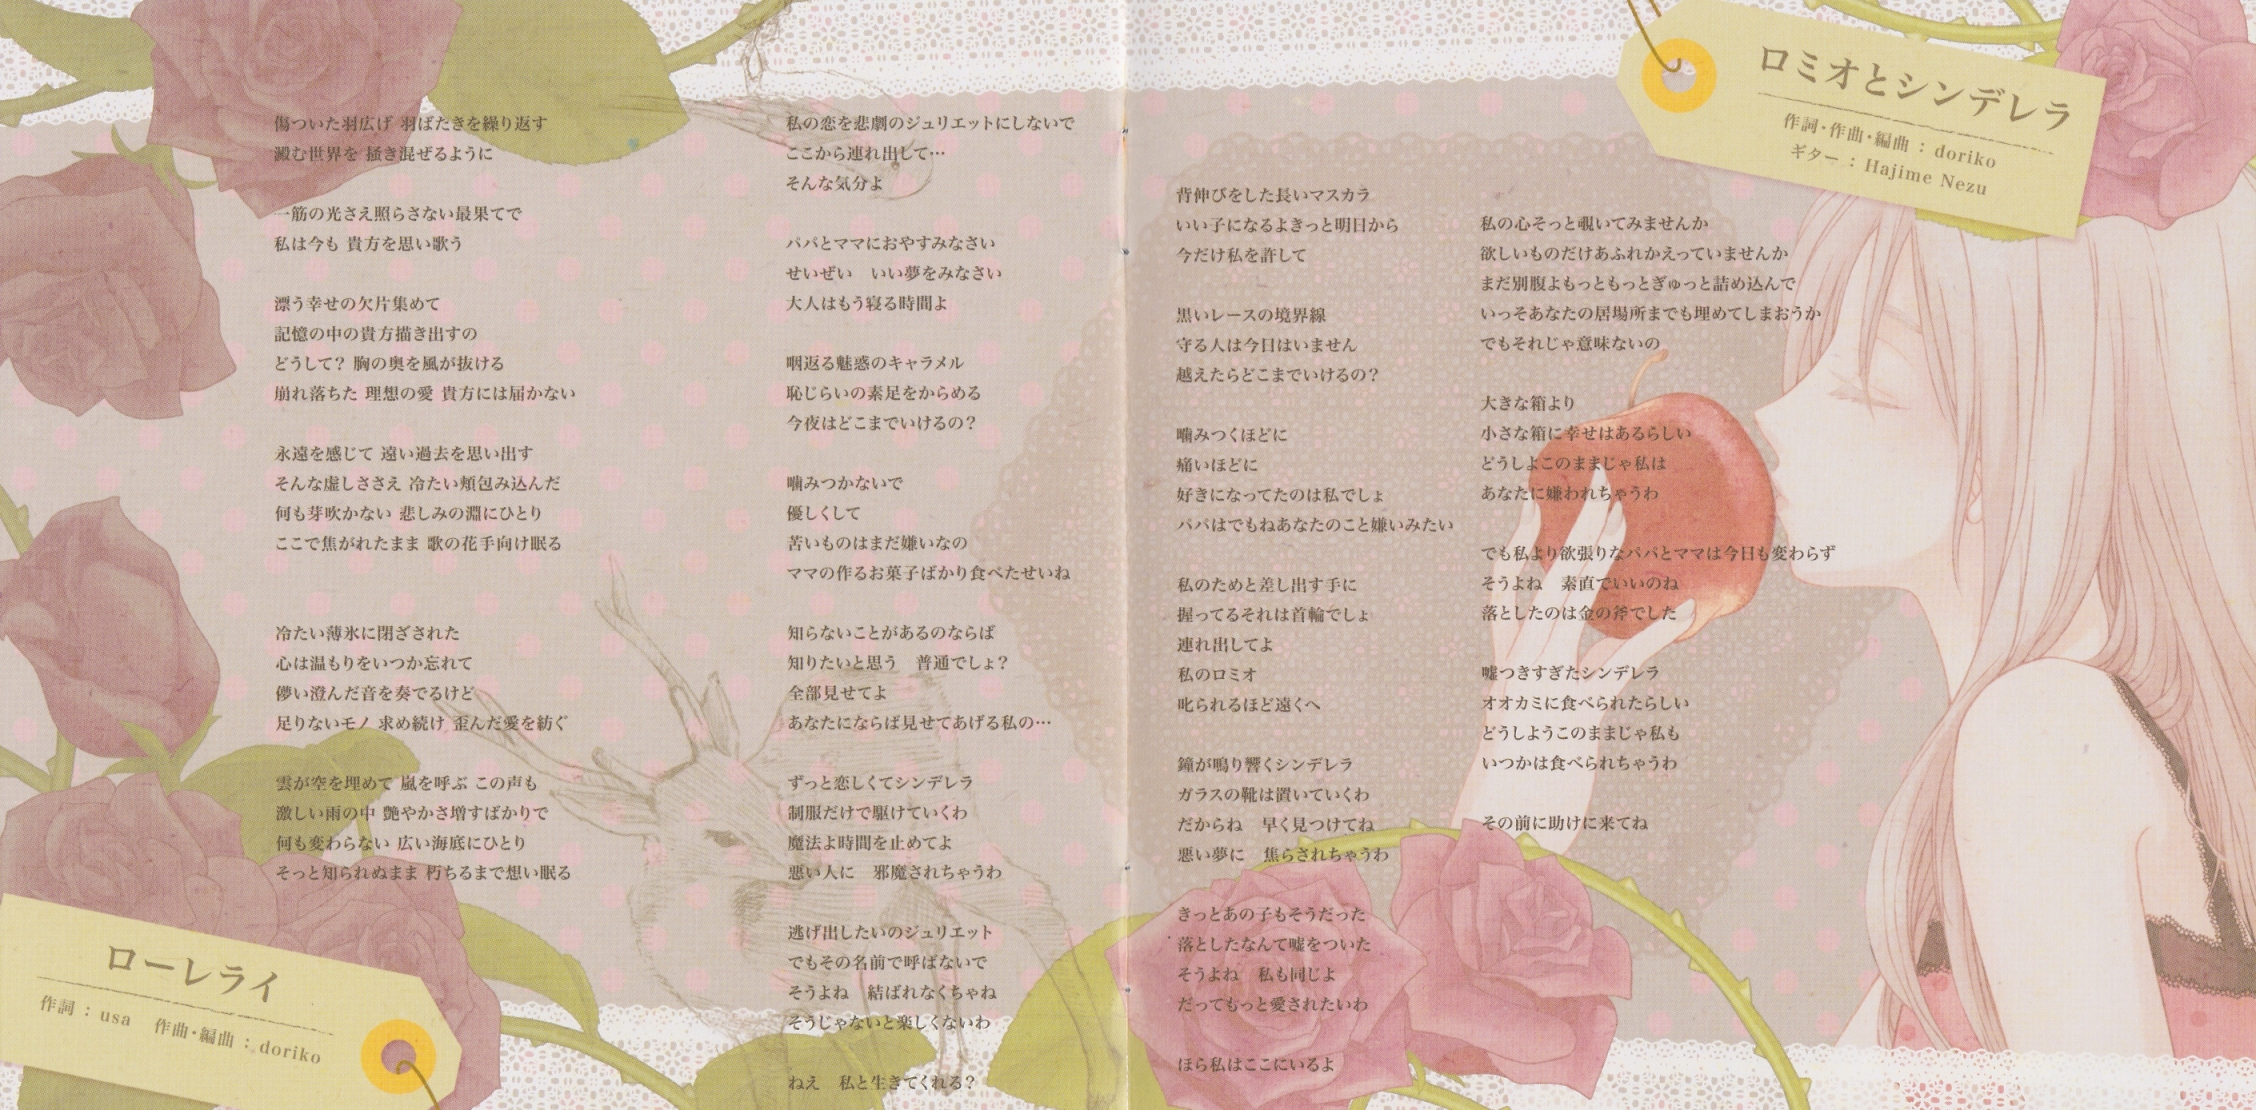 ローレライ
作詞：usa　作曲・編曲：doriko
傷ついた羽広げ 羽ばたきを繰り返す
澱む世界を 掻き混ぜるように
一筋の光さえ照らさない最果てで
私は今も 貴方を思い歌う
漂う幸せの欠片集めて
記憶の中の貴方描き出すの
どうして? 胸の奥を風が抜ける
崩れ落ちた 理想の愛 貴方には届かない
永遠を感じて 遠い過去を思い出す
そんな虚しささえ 冷たい頬包み込んだ
何も芽吹かない 悲しみの淵にひとり
ここで焦がれたまま 歌の花手向け眠る
冷たい薄氷に閉ざされた
心は温もりをいつか忘れて
儚い澄んだ音を奏でるけど
足りないモノ 求め続け 歪んだ愛を紡ぐ
雲が空を埋めて 嵐を呼ぶ この声も
激しい雨の中 艶やかさ増すばかりで
何も変わらない 広い海底にひとり
そっと知られぬまま 朽ちるまで想い眠る
ロミオとシンデレラ
作詞・作曲・編曲：doriko
ギター：Hajime Nezu
私の恋を悲劇のジュリエットにしないで
ここから連れ出して…
そんな気分よ
パパとママにおやすみなさい
せいぜい　いい夢をみなさい
大人はもう寝る時間よ
咽返る魅惑のキャラメル
恥じらいの素足をからめる
今夜はどこまでいけるの?
噛みつかないで
優しくして
苦いものはまだ嫌いなの
ママの作るお菓子ばかり食べたせいね
知らないことがあるのならば
知りたいと思う　普通でしょ?
全部見せてよ
あなたにならば見せてあげる私の…
ずっと恋しくてシンデレラ
制服だけで駆けていくわ
魔法よ時間を止めてよ
悪い人に　邪魔されちゃうわ
逃げ出したいのジュリエット
でもその名前で呼ばないで
そうよね　結ばれなくちゃね
そうじゃないと楽しくないわ
ねえ　私と生きてくれる?
背伸びをした長いマスカラ
いい子になるよきっと明日から
今だけ私を許して
黒いレースの境界線
守る人は今日はいません
越えたらどこまでいけるの?
噛みつくほどに
痛いほどに
好きになってたのは私でしょ
パパはでもねあなたのこと嫌いみたい
私のためと差し出す手に
握ってるそれは首輪でしょ
連れ出してよ
私のロミオ
叱られるほど遠くへ
鐘が鳴り響くシンデレラ
ガラスの靴は置いていくわ
だからね　早く見つけてね
悪い夢に　焦らされちゃうわ
きっとあの子もそうだった
落としたなんて嘘をついた
そうよね　私も同じよ
だってもっと愛されたいわ
ほら私はここにいるよ
私の心そっと覗いてみませんか
欲しいものだけあふれかえっていませんか
まだ別腹よもっともっとぎゅっと詰め込んで
いっそあなたの居場所までも埋めてしまおうか
でもそれじゃ意味ないの
大きな箱より
小さな箱に幸せはあるらしい
どうしよこのままじゃ私は
あなたに嫌われちゃうわ
でも私より欲張りなパパとママは今日も変わらず
そうよね　素直でいいのね
落としたのは金の斧でした
嘘つきすぎたシンデレラ
オオカミに食べられたらしい
どうしようこのままじゃ私も
いつかは食べられちゃうわ
その前に助けに来てね